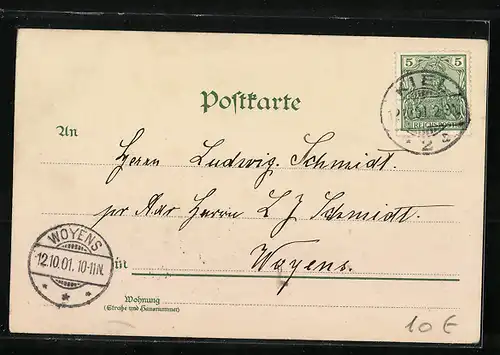 5 5
REICHSPOST
KIEL
12.10.01. 2-3N
* 2 a
Postkarte
An
Herrn Ludwig. Schmidt.
pr Adr Herrn L J Schmidt.
WOYENS
12.10.01. 10-11N.
* * *
in Woyens.
Wohnung
(Straße und Hausnummer)
10 €